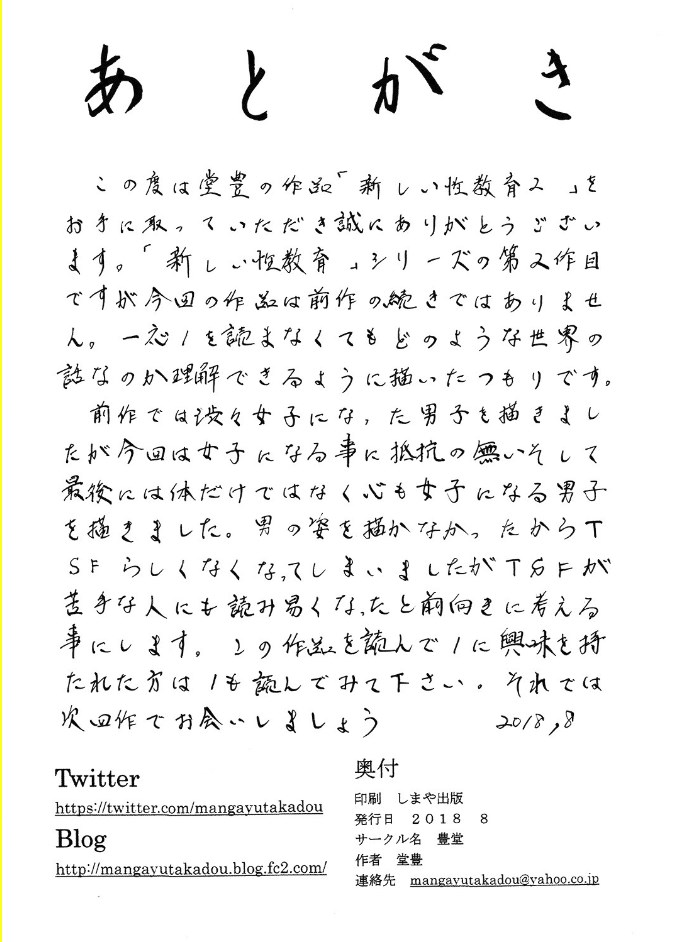 あとがき
この度は堂豊の作品「新しい性教育2」を
お手に取っていただき誠にありがとうござい
ます。「新しい性教育」シリーズの第2作目
ですが今回の作品は前作の続きではありませ
ん。一応1を読まなくてもどのような世界の
話なのか理解できるように描いたつもりです。
前作では渋々女子になった男子を描きまし
たが今回は女子になる事に抵抗の無いそして
最後には体だけではなく心も女子になる男子
を描きました。男の姿を描かなかったからT
SFらしくなくなってしまいましたがTSFが
苦手な人にも読み易くなったと前向きに考える
事にします。この作品を読んで1に興味を持
たれた方は1も読んでみて下さい。それでは
次回作でお会いしましょう 2018,8
Twitter
https://twitter.com/mangayutakadou
Blog
http://mangayutakadou.blog.fc2.com/
奥付
印刷 しまや出版
発行日 2018 8
サークル名 豊堂
作者 堂豊
連絡先 mangayutakadou@yahoo.co.jp